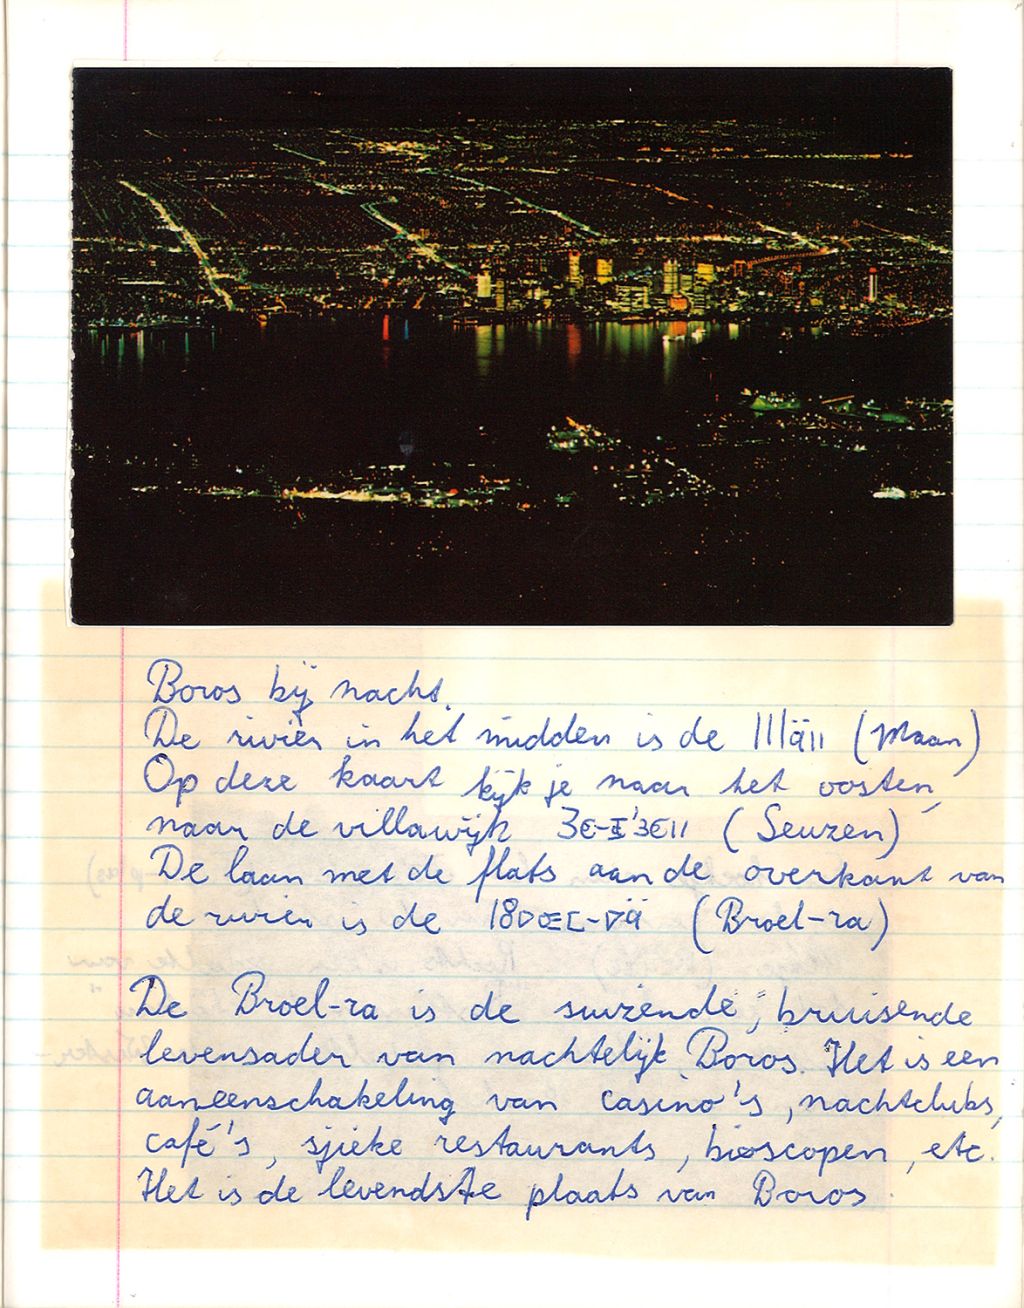 Boros bij nacht.
De rivier in het midden is de (Maan)
Op deze kaart kijk je naar het oosten,
naar de villawijk (Seuzen)
De laan met de flats aan de overkant van
de rivier is de (Broel-ra)
De Broel-ra is de suizende, bruisende
levensader van nachtelijk Boros. Het is een
aaneenschakeling van casino's, nachtclubs,
café's, sjieke restaurants, bioscopen, etc.
Het is de levendste plaats van Boros